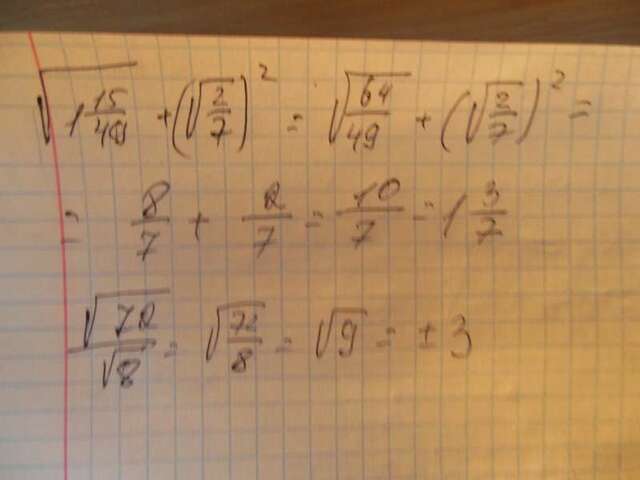 √(1 15/49) + (√(2/7))² = √(64/49) + (√(2/7))² =
= 8/7 + 2/7 = 10/7 = 1 3/7
√72/√8 = √(72/8) = √9 = ± 3